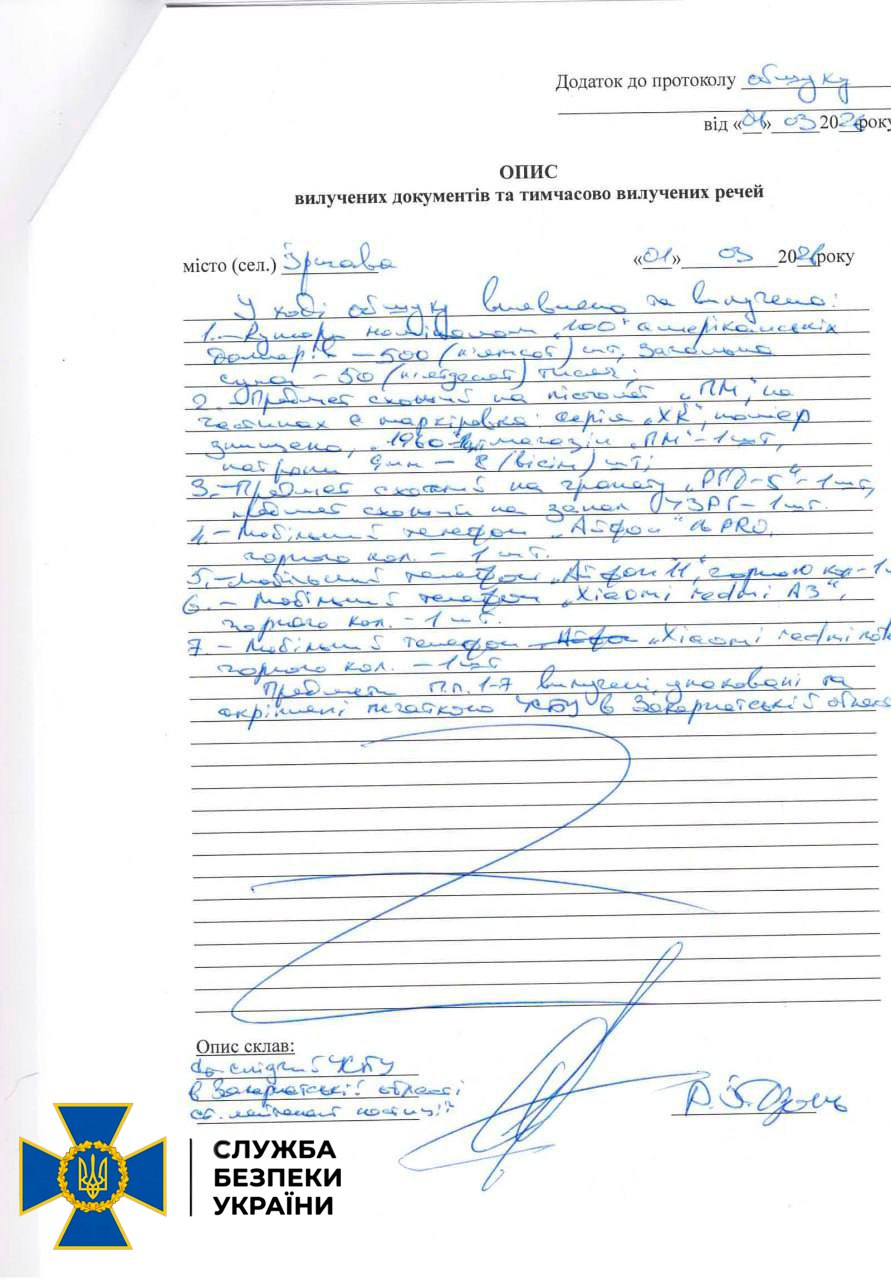 Додаток до протоколу обшуку
від «01» 03 2026 року
ОПИС
вилучених документів та тимчасово вилучених речей
місто (сел.)
«01» 03 2026 року
У ході обшуку виявлено та вилучено:
1. – Купюри номіналом „100“ американських
доларів – 500 (п'ятсот) шт, загальна
сума – 50 (п'ятдесят) тисяч;
2. – Предмет схожий на пістолет „ПМ“, на
частинах є маркіровка: серія „ХК“, номер
знищено, „1960 магазин „ПМ“ – 1 шт,
патрони 9мм – 8 (вісім) шт;
3. – Предмет схожий на гранату „РГД-5“ – 1 шт,
предмет схожий на запал УЗРГ – 1 шт.
4. – Мобільний телефон „Айфон“ 16 PRO,
чорного кол. – 1 шт.
5. – Мобільний телефон „Айфон 11“, чорного кол – 1
6. – Мобільний телефон „Xiaomi redmi A3“,
чорного кол. – 1 шт.
7. – Мобільний телефон „Xiaomi redmi
чорного кол. – 1 шт
Предмети п.п. 1-7 вилучені, упаковані та
скріплені печаткою УСБУ в Закарпатській
Опис склав:
слідчий УСБУ
в Закарпатській області
ст. лейтенант юстиції
СЛУЖБА
БЕЗПЕКИ
УКРАЇНИ